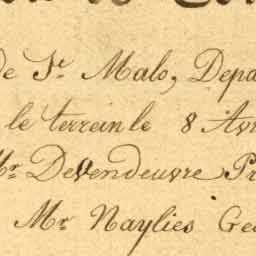 de St. Malo, Depa
le terrein le 8 Avr
Mr. Devendeuvre Pr
Mr Naylies Geo